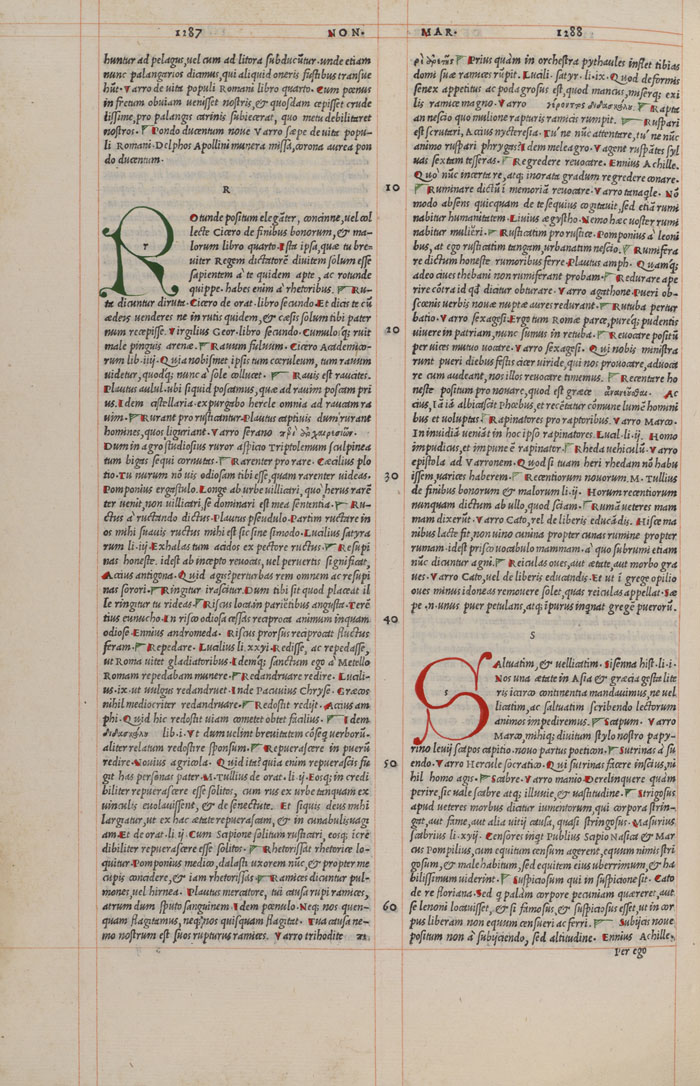 1287 NON.
huntur ad pelagus, uel cum ad litora subducũtur. unde etiam
nunc palangarios dicimus, qui aliquid oneris fustibus transue
hũt. Varro de uita populi Romani libro quarto. Cum pœnus
in fretum obuiam uenisset nostris, & quosdam cœpisset crude
lissime, pro palangis carinis subiicerat, quo metu debilitaret
nostros. Pondo ducentum noue Varro sæpe de uita popu-
li Romani. Delphos Apollini munera missa, corona aurea pon
do ducentum.
R
Rotunde positum elegãter, concinne, uel col
lecte Cicero de finibus bonorum, & ma-
lorum libro quarto. Ista ipsa, quæ tu bre-
uiter Regem dictatorẽ diuitem solum esse
sapientem a' te quidem apte, ac rotunde
quippe. habes enim a' rhetoribus. Ru-
ta dicuntur diruta. Cicero de orat. libro secundo. Et dicis te cũ
ædeis uenderes ne in rutis quidem, & cæsis solum tibi pater
num recœpisse. Virgilius Geor. libro secundo. Cumulosq; ruit
male pinguis arenæ. Rauum fuluum. Cicero Academico-
rum lib. iiij. Quia nobismet ipsis tum cœruleum, tum rauum
uidetur, quodq; nunc a' sole collucet. Rauis est raucitas.
Plautus aulul. ubi siquid poscamus, quæ ad rauim poscam pri
us. Idem cistellaria. expurgabo hercle omnia ad raucam ra
uim. Rurant pro rusticantur. Plautus captiuis dum rurant
homines, quos liguriant. Varro serano
Dum in agro studiosius ruror aspicio Triptolemum sculpinea
tum bigas sequi cornutas. Rarenter pro rare. Cæcilius plo
tio. Tu nurum nõ uis odiosam tibi esse, quam rarenter uideas.
Pomponius ergastulo. Longe ab urbe uilliceri, quo' herus rarẽ
ter uenit, non uillicari, sed dominari est mea sententia. Ru-
ctus a' ructando dictus. Plautus pseudulo. Partim ructare in
os mihi suauis ructus mihi est sic sine simodo. Lucilius satyra
rum li. iij. Exhalas tum acidos ex pectore ructus. Resupi
nas honeste. idest ab incepto reuocas, uel peruertis significat,
Accius antigona. Quid agis? perturbas rem omnem ac resupi
nas soror. Ringitur irascitur. Dum tibi sit quod placeat il
le ringitur tu rideas. Riscus loca in pariẽtibus angusta. Terẽ
tius eunucho. In risco odiosa cessas reciproca animum inquam
odiose. Ennius andromeda. Riscus prorsus reciprocat fluctus
feram. Repedare. Lucilius li. xxvj. Redisse, ac repedasse,
ut Roma uitet gladiatoribus. Idemq; sanctum ego a' Metello
Romam repedabam munere. Redandruare redire. Lucili-
us. ix. ut uulgus redandruet. Inde Pacuuius Chryse. Græcos
nihil mediocriter redandruare. Redostit redijt. Accius am
phi. Quid hic redostit uiam cometet obtet facilius. Idem
lib. i. Vt dum uelint breuitatem cõseq; uerborũ.
aliter relatum redostire sponsum. Repuerascere in puerũ
redire. Nouius agricola. Quid ita? quia enim repuerascis fu-
git has personas pater. M. Tullius de orat. li. ij. Eosq; in credi
biliter repuerascere esse solitos, cum rus ex urbe tanquam ex
uinculis euolauissent, & de senectute. Et siquis deus mihi
largiatur, ut ex hac ætate repuerascam, & in cunabulis uagi
am. Et de orat. li. ij. Cum Scipione solitum rusticari, eosq; icrẽ
dibiliter repuerascere esse solitos. Rhetorissat rhetorice lo-
quitur. Pomponius medico, dalasti uxorem nunc, & propter me
cupis concidere, & iam rhetorissas. Ramices dicuntur pul-
mones, uel hirnea. Plautus mercatore, tui causa rupi ramices,
atrum dum sputo sanguinem. Idem pœnulo. Neq; nos quen-
quam flagitamus, neq; nos quisquam flagitat. Tua causa ne-
mo nostrum est suos rupturus ramices. Varro trihodite
10
20
30
40
50
60
MAR. 1288
Prius quam in orchestra pythaules inflet tibias
domi suæ ramices rupit. Lucili. satyr. li. ix. Quod deformis
senex appetitus ac podagrosus est, quod mancus, miserq; exi
lis ramice magno. Varro Rapta
an nescio quo mulione rapturis ramicis rumpit. Ruspari
est scrutari, Accius nycteresia. Tu' ne nũc attentare, tu' ne nũc
animo ruspari phrygas? Idem meleagro. Vagent ruspãtes syl
uas sextam tesseras. Regredere reuocare. Ennius Achille.
Quo' nũc incerta re, atq; inorata gradum regredere conare.
Ruminare dictũ i memoriã reuocare. Varro tanaqle. Nõ
modo absens quicquam de te sequius cogitauit, sed etiã rumi
nabitur humanitatem. Liuius ægystho. Nemo hæc uoster rumi
nabitur mulieri. Rusticatim pro rustice. Pomponius a' leoni
bus, at ego rusticatim tangam, urbanatim nescio. Rumifera
re dictum honeste rumoribus ferre. Plautus amph. Quamq;
adeo ciues thebani non rumiferant probam. Redurare ape
rire cõtra id qd dicitur obturare. Varro agathone. Pueri ob-
scœnis uerbis nouæ nuptæ aures redurant. Rutuba pertur
batio. Varro sexagesi. Ergo tum Romæ parce, pureq; pudentis
uiuere in patriam, nunc sumus in rutuba. Reuocare positũ
per uices mutuo uocare. Varro sexagesi. Qui nobis ministra
runt pueri diebus festis cicer uiride, qui nos prouocare, aduoca
re cum audeant, nos illos reuocare timemus. Recentare ho
neste positum pro nouare, quod est græce Ac
cius, Iã iã albicascit Phœbus, et recẽtatur cõmune lumẽ homini
bus et uoluptas. Rapinatores pro raptoribus. Varro Marco.
In inuidiã ueniãt in hoc ipso rapinatores. Lucil. li. ij. Homo
impudicus, et impune ẽ rapinator. Rheda uehiculũ. Varro
epistola ad Varronem. Quod si tuam heri rhedam nõ habu
issem, uarices haberem. Recentiorum nouiorum. M. Tullius
de finibus bonorum & malorum li. ij. Horum recentiorum
nunquam dictum ab ullo, quod sciam. Rumã ueteres mam
mam dixerũt. Varro Cato, rel de liberis educãdis. Hisce ma
nibus lacte fit, non uino cunina propter cunas rumine. propter
rumam. idest prisco uocabulo mammam. a' quo subrumi etiam
nũc dicuntur agni. Reiculas oues, aut ætate, aut morbo gra
ues. Varro Cato, uel de liberis educandis. Et ut i grege opilio
oues minus idoneas remouere solet, quas reiculas appellat. Sæ
pe .n. unus puer petulans, atq; ipurus inqnat gregẽ puerorũ.
S
Saltuatim, & uellicatim. Sisenna hist. li. i.
Nos una ætate in Asia & græcia gesta lite
ris icirco continentia mandauimus, ne uel
licatim, ac saltuatim scribendo lectorum
animos impediremus. Scapum. Varro
Marco, mihiq; diuitum stylo nostro papy-
rino leuij scapos capitio. nouo partus poeticon. Sutrinas a' su
endo. Varro Hercule Socratico. Qui sutrinas facere inscius, ni
hil homo agis. Scabre. Varro manio. Derelinquere quam
perire, sic uale scabre atq; illuuie, & uastitudine. Strigosus
apud ueteres morbus dicitur iumentorum, qui corpora strin-
git, aut fame, aut alia uitij causa, quasi stringosus. Masurius
sabrius li. xxij. Censores inqt Publius Scipio Nasica & Mar
cus Pompilius, cum equitum censum agerent, equum nimis stri
gosum, & male habitum, sed equitem eius uberrimum, & ha
bilissimum uiderint. Suspiciosum qui in suspicione sit. Cato
de re floriana. Sed q palàm corpore pecuniam quæreret, aut
se lenoni locauisset, & si famosus, & suspiciosus esset, ut in cor
pus liberam non equum censueri ac ferri. Subijcis noue
positum non a' subijciendo, sed altitudine. Ennius Achille.
Per ego